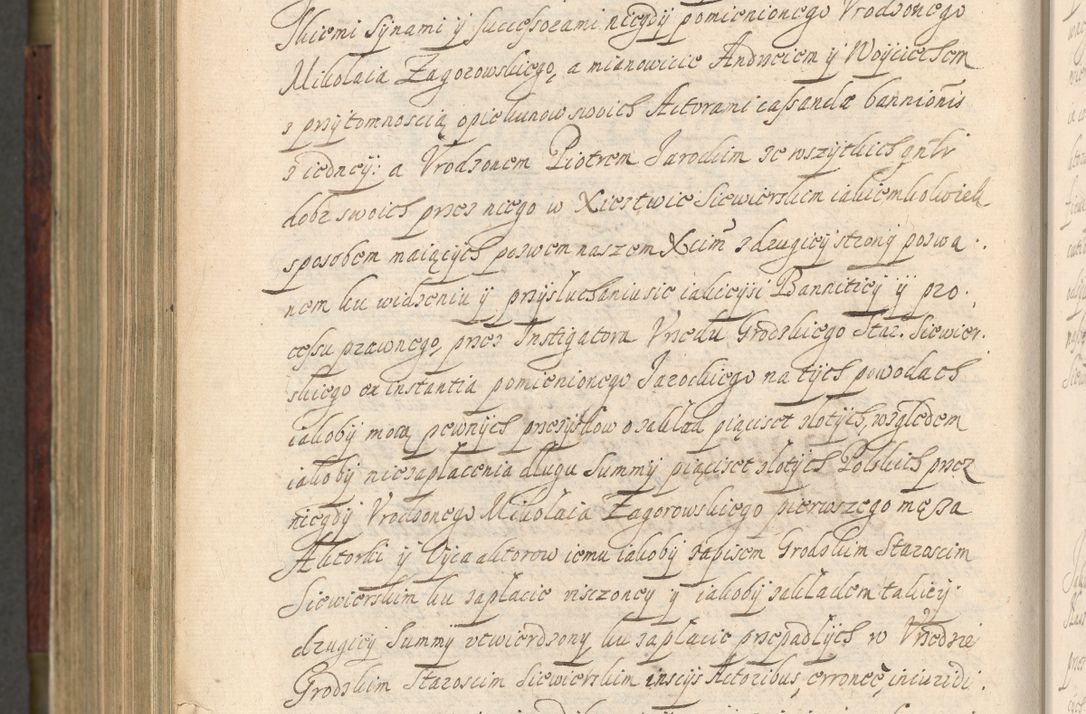 skiemi Synami y successorami niegdy pomienionego Vrodzonego
Mikolaia Zagorowskiego, a mianowicie Andrzeiem y Woyciechem
z przytomnoscią opiekunow swoich Actorami cassandæ bannionis
z iedney: a Vrodzonem Piotrem Jarockim ze wszytkich gnlr
dobr swoich przez niego w Xięstwie Siewierskim iakiemkolwiek
sposobem maiących pozwem naszem Xcim̃ z drugiey strony pozwa.
nem ku widzeniu y przysluchaniu sie iakieysi Banniticy y pro.
cessu prawnego, przez Instigatora Vrzędu Grodzkiego Star. Siewier.
skiego ex instantia pomienionego Jarockiego na tych powodach
iakoby mocą pewnych przezyskow o zaklad pięciset zlotych, względem
iakoby niezaplacenia dlugu Summy pięciset zlotych Polskich przez
niegdy Vrodzonego Mikolaia Zagorowskiego pierwszego męża
Aktorki y Oyca aktorow iemu iakoby zapisem Grodzkim Staroscim
Siewierskim ku zaplacie visczoney y iakoby zakladem takiey
drugiey Summy vtwierdzony ku zaplacie przepadlych w Vrzędzie
Grodzkim Staroscim Siewierskim insciis Actoribus, erroneè, iniuridi.